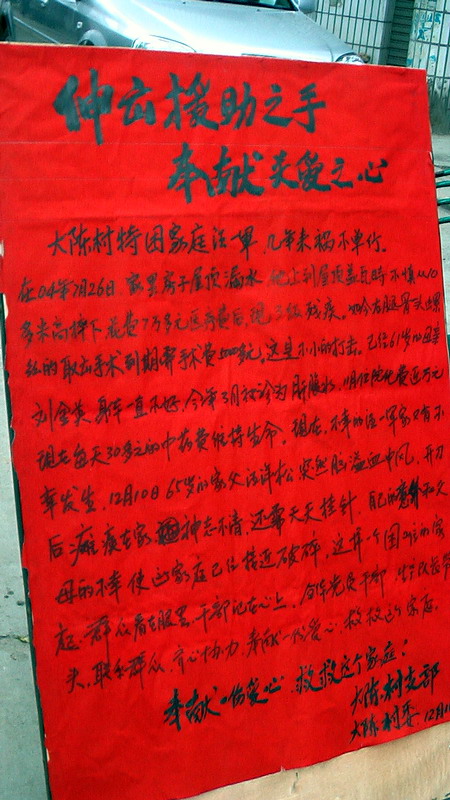 伸出援助之手
奉献关爱之心
大陈村特困家庭汪军，几年来祸不单行。
在04年7月26日，家里房子屋顶漏水，他上到屋顶盖瓦时不慎从10
多米高摔下，花费7万多元医疗费后，现三级残疾。
的取出手术到期需手术费5000多元。这是不小的打击。已经61岁的母亲
刘金英身体一直不好，今年3月被诊为肝腹水，住院花费近万元
现在每天30多元的中药费维持生命。现在，不幸的汪军家又有不
幸发生，12月10日65岁的家父汪洋松突然脑溢血中风，开刀
后瘫痪在家神志不清，还需天天挂针，自己的意外和父
母的不幸使这家庭已经接近破碎，这样一个困难的家
庭，群众看在眼里，干部记在心上，党员干部
头，联系群众，齐心协力，奉献一份爱心，救救这个家庭。
奉献一份爱心 救救这个家庭！
大陈村支部
大陈村委 12月